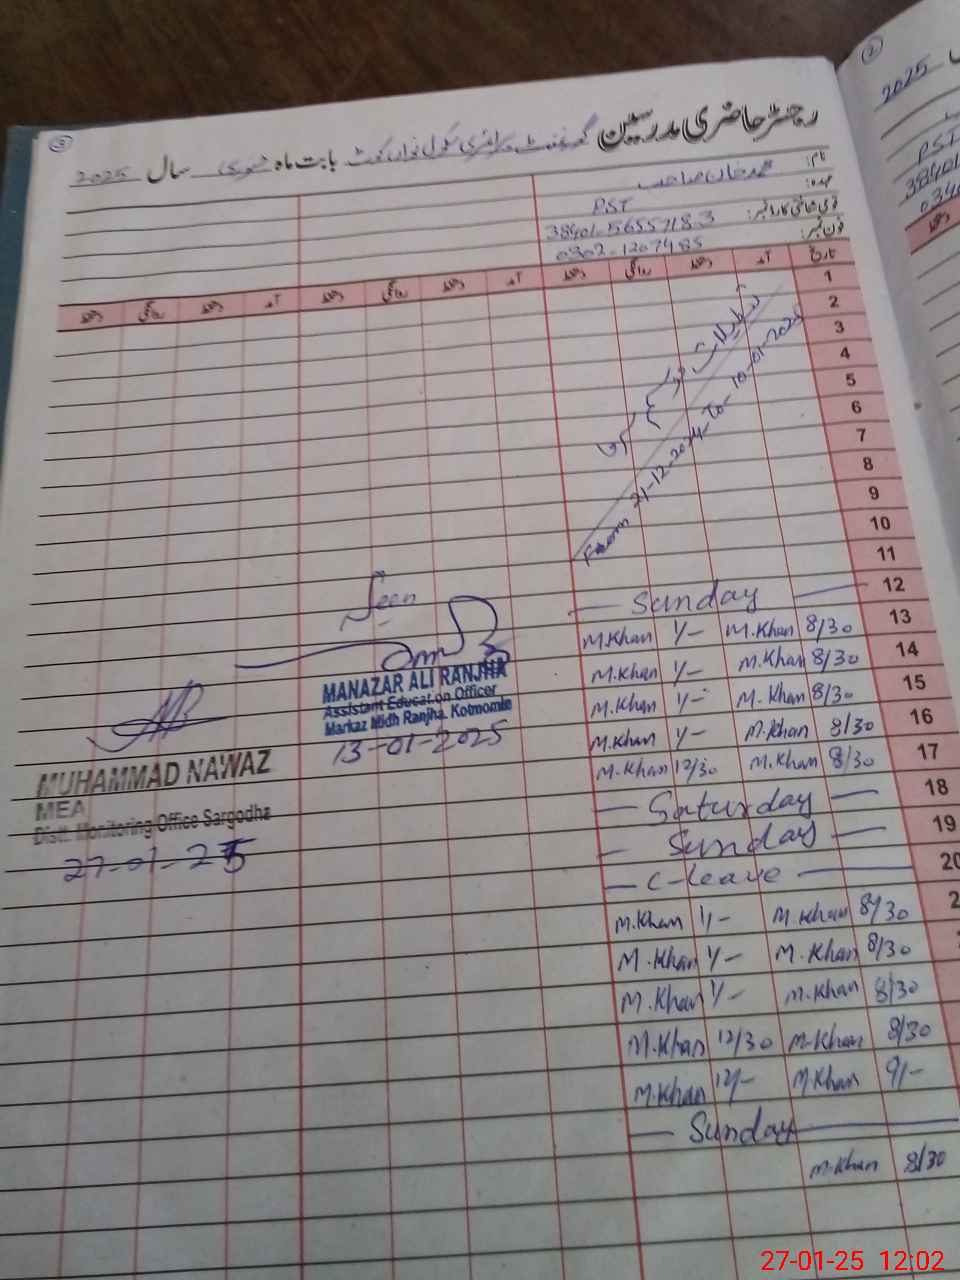 رجسٹر حاضری مدرسین گورنمنٹ پرائمری سکول نواں کوٹ بابت ماہ جنوری سال 2025
3
نام: محمد خان صاحب
عہدہ: PST
قومی شناختی کارڈ نمبر: 38401-5655718-3
فون نمبر: 0302-1207485
تاریخ آمد دستخط روانگی دستخط آمد دستخط روانگی دستخط آمد دستخط روانگی دستخط
1
2
3
4
5
6
7
8
9
10
11
تعطیلات موسم سرما
From 21-12-2024 To 10-01-2025
12 — Sunday —
13 8/30 M.Khan 1/- M.Khan
14 8/30 M.Khan 1/- M.Khan
15 8/30 M.Khan 1/- M.Khan
16 8/30 M.Khan 1/- M.Khan
17 8/30 M.Khan 12/30 M.Khan
18 — Saturday —
19 — Sunday —
20 — C-leave —
2 8/30 M.Khan 1/- M.Khan
8/30 M.Khan 1/- M.Khan
8/30 M.Khan 1/- M.Khan
8/30 M.Khan 12/30 M.Khan
9/- M.Khan 12/- M.Khan
— Sunday —
8/30 M.Khan
Seen
MANAZAR ALI RANJHA
Assistant Education Officer
Markaz Midh Ranjha, Kotmomin
13-01-2025
MUHAMMAD NAWAZ
MEA
Distt. Monitoring Office Sargodha
27-01-25
2
2025
PST
38401
034
27-01-25 12:02